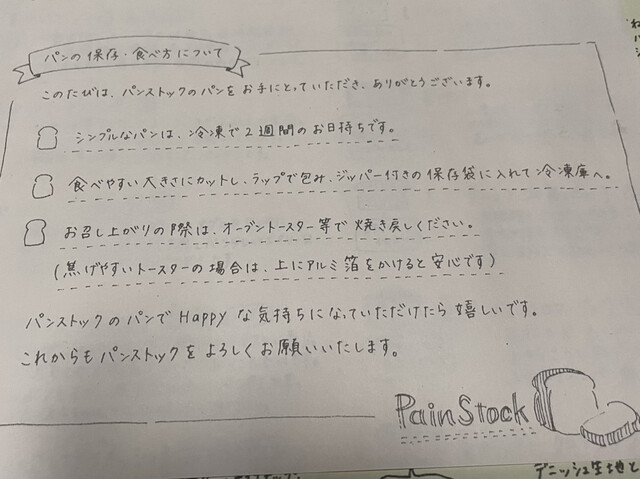 パンの保存・食べ方について
このたびは、パンストックのパンをお手にとっていただき、ありがとうございます。
シンプルなパンは、冷凍で2週間のお日持ちです。
食べやすい大きさにカットし、ラップで包み、ジッパー付きの保存袋に入れて冷凍庫へ。
お召し上がりの際は、オーブントースター等で焼き戻しください。
(焦げやすいトースターの場合は、上にアルミ箔をかけると安心です)
パンストックのパンでHappyな気持ちになっていただけたら嬉しいです。
これからもパンストックをよろしくお願いいたします。
Pain Stock
デニッシュ生地と